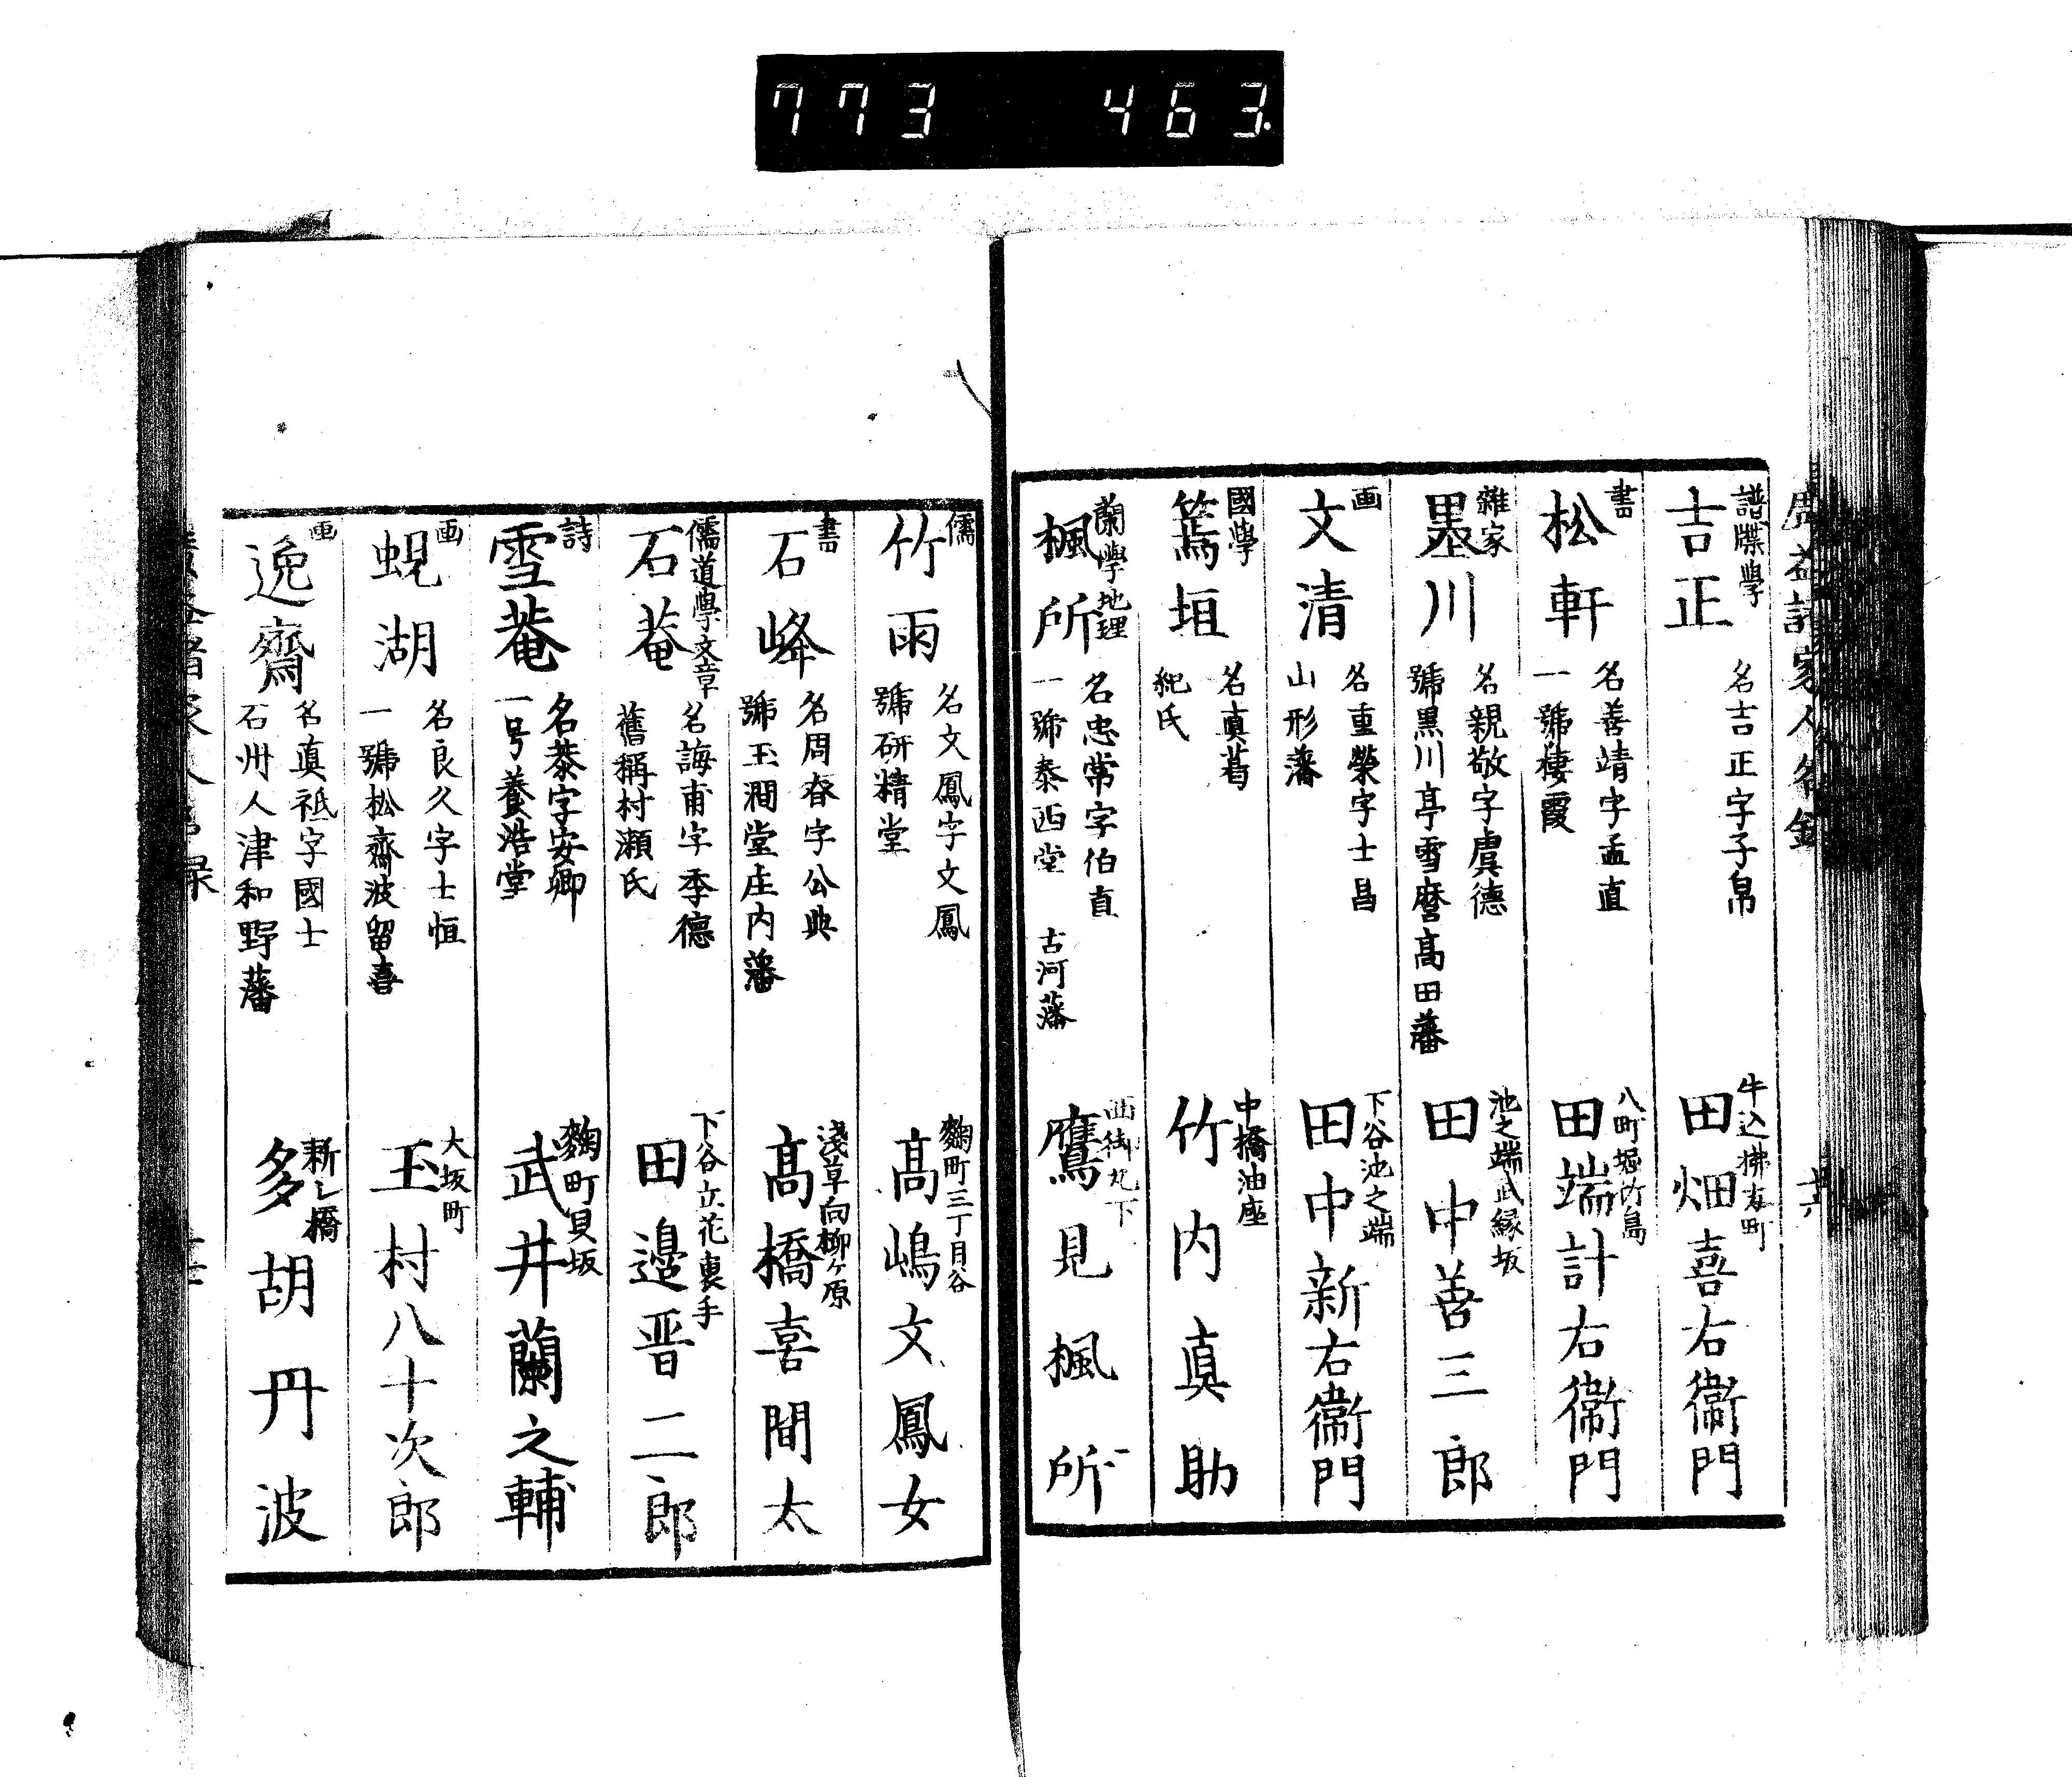 773 463.
廣益諸家人名録
譜牒學
吉正
名吉正字子帛
牛込拂方町
田畑喜右衞門
書
松軒
名善靖字孟直
一號棲霞
八町堀竹島
田端計右衞門
雜家
墨川
名親敬字虞德
號黒川亭雪麿高田藩
池之端武縁坂
田中善三郎
画
文清
名重榮字士昌
山形藩
下谷池之端
田中新右衞門
國學
篶垣
名真葛
紀氏
中橋油座
竹内真助
蘭學地理
楓所
名忠常字伯直
一號泰西堂 古河藩
西御丸下
鷹見楓所
儒
竹雨
名文鳳字文鳳
號研精堂
麹町三丁目谷
髙嶋文鳳女
書
石峰
名周春字公典
號玉澗堂庄内藩
淺草向柳ヶ原
髙橋喜間太
儒道學文章
石菴
名誨甫字季德
舊稱村瀬氏
下谷立花裏手
田邉晋二郎
詩
雪菴
名恭字安卿
一号養浩堂
麹町貝坂
武井蘭之輔
画
蜆湖
名良久字士恒
一號松齋波留喜
大坂町
玉村八十次郎
画
逸齋
名真祗字國士
石州人津和野藩
新シ橋
多胡丹波